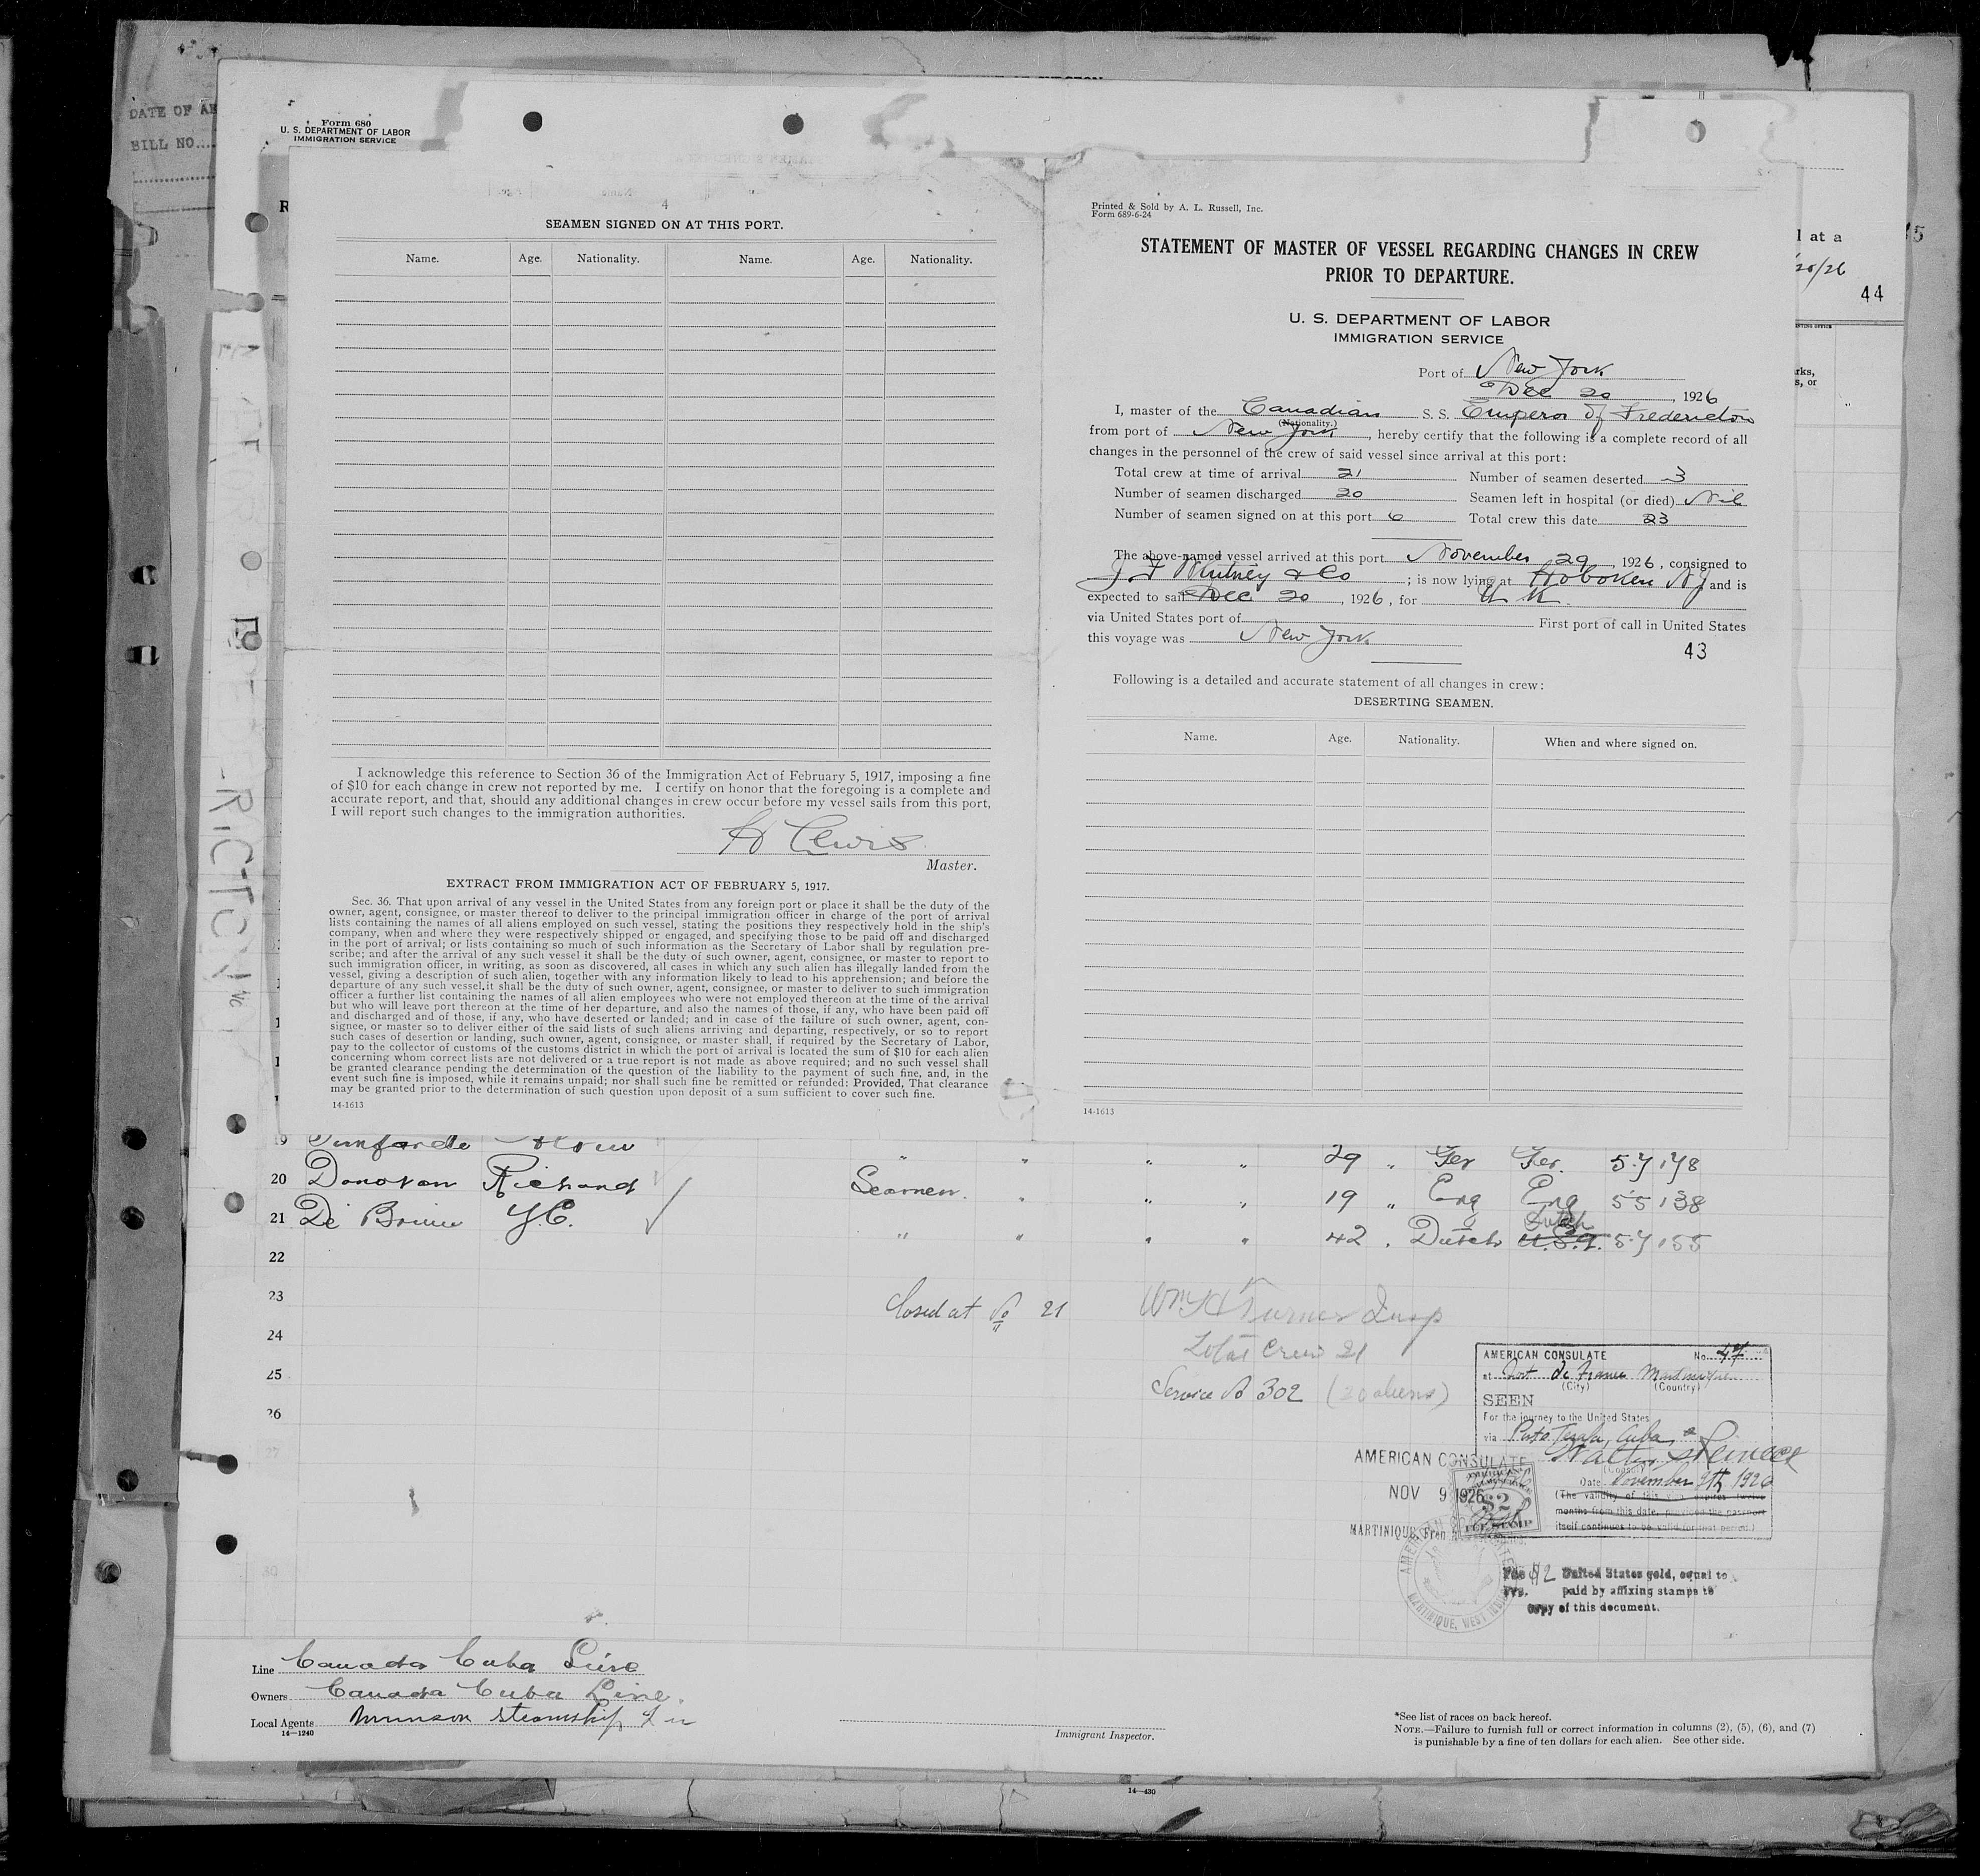 DATE OF AR
BILL NO....
Form 680
U. S. DEPARTMENT OF LABOR
IMMIGRATION SERVICE
4
SEAMEN SIGNED ON AT THIS PORT.
Name. Age. Nationality. Name. Age. Nationality.
I acknowledge this reference to Section 36 of the Immigration Act of February 5, 1917, imposing a fine
of $10 for each change in crew not reported by me. I certify on honor that the foregoing is a complete and
accurate report, and that, should any additional changes in crew occur before my vessel sails from this port,
I will report such changes to the immigration authorities.
H Lewis
Master.
EXTRACT FROM IMMIGRATION ACT OF FEBRUARY 5, 1917.
Sec. 36. That upon arrival of any vessel in the United States from any foreign port or place it shall be the duty of the
owner, agent, consignee, or master thereof to deliver to the principal immigration officer in charge of the port of arrival
lists containing the names of all aliens employed on such vessel, stating the positions they respectively hold in the ship's
company, when and where they were respectively shipped or engaged, and specifying those to be paid off and discharged
in the port of arrival; or lists containing so much of such information as the Secretary of Labor shall by regulation pre-
scribe; and after the arrival of any such vessel it shall be the duty of such owner, agent, consignee, or master to report to
such immigration officer, in writing, as soon as discovered, all cases in which any such alien has illegally landed from the
vessel, giving a description of such alien, together with any information likely to lead to his apprehension; and before the
departure of any such vessel.it shall be the duty of such owner, agent, consignee, or master to deliver to such immigration
officer a further list containing the names of all alien employees who were not employed thereon at the time of the arrival
but who will leave port thereon at the time of her departure, and also the names of those, if any, who have been paid off
and discharged and of those, if any, who have deserted or landed; and in case of the failure of such owner, agent, con-
signee, or master so to deliver either of the said lists of such aliens arriving and departing, respectively, or so to report
such cases of desertion or landing, such owner, agent, consignee, or master shall, if required by the Secretary of Labor,
pay to the collector of customs of the customs district in which the port of arrival is located the sum of $10 for each alien
concerning whom correct lists are not delivered or a true report is not made as above required; and no such vessel shall
be granted clearance pending the determination of the question of the liability to the payment of such fine, and, in the
event such fine is imposed, while it remains unpaid; nor shall such fine be remitted or refunded: Provided, That clearance
may be granted prior to the determination of such question upon deposit of a sum sufficient to cover such fine.
14-1613
Printed & Sold by A. L. Russell, Inc.
Form 689-6-24
STATEMENT OF MASTER OF VESSEL REGARDING CHANGES IN CREW
PRIOR TO DEPARTURE.
U. S. DEPARTMENT OF LABOR
IMMIGRATION SERVICE
Port of New York
Dec 20, 1926
I, master of the Canadian S. S. Emperor of Fredericton
(Nationality.)
from port of New York, hereby certify that the following is a complete record of all
changes in the personnel of the crew of said vessel since arrival at this port:
Total crew at time of arrival 21 Number of seamen deserted 3
Number of seamen discharged 20 Seamen left in hospital (or died) Nil
Number of seamen signed on at this port 6 Total crew this date 23
The above-named vessel arrived at this port November 29, 1926, consigned to
J F Whitney & Co; is now lying at Hoboken N J and is
expected to sail Dec 20, 1926, for U K.
via United States port of First port of call in United States
this voyage was New York
43
Following is a detailed and accurate statement of all changes in crew:
DESERTING SEAMEN.
Name. Age. Nationality. When and where signed on.
14-1613
l at a
/20/26
44
rks,
s, or
19 29 " Ger Ger. 5.7 178
20 Donovan Richard Seamen. " " " 19 " Eng Eng 55 138
21 De Y.C. " " " " 42 " Dutch Dutch U.S.A. 5.7 155
22
23
24
25
26
27
30
Closed at No 21
Wm H Turner Insp
Total Crew 21
Service No 302 (20 aliens)
AMERICAN CONSULATE No. 47
at Fort de France Martinique
(City) (Country)
SEEN
For the journey to the United States
via Cuba,
(Consul)
Date November 9th 1926
(The validity of this visa expires twelve
months from this date, provided the passport
itself continues to be valid for that period.)
AMERICAN CONSULATE
NOV 9 1926
MARTINIQUE, Fren
$2
FEE STAMP
MARTINIQUE, WEST INDIES
Fee $2 United States gold, equal to
Frs. paid by affixing stamps to
copy of this document.
Line Canada Cuba Line
Owners Canada Cuba Line.
Local Agents Munson Steamship Line
14—1240
Immigrant Inspector.
*See list of races on back hereof.
NOTE.—Failure to furnish full or correct information in columns (2), (5), (6), and (7)
is punishable by a fine of ten dollars for each alien. See other side.
14—430